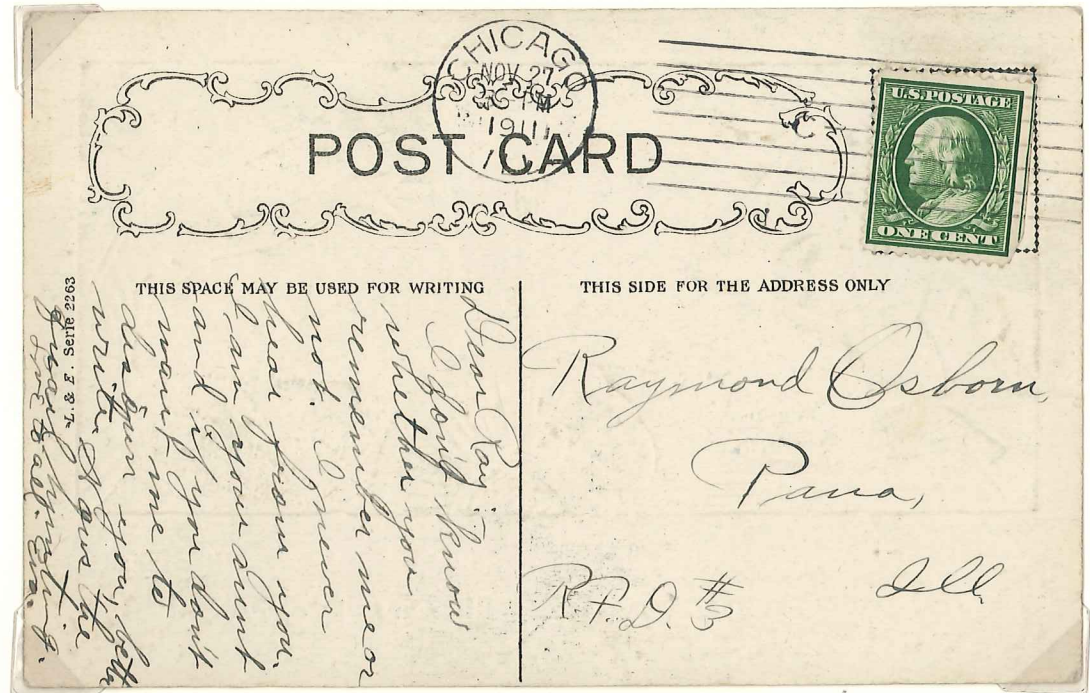 CHICAGO
NOV 27
PM
1911
POST CARD
U.S. POSTAGE
ONE CENT
THIS SPACE MAY BE USED FOR WRITING
THIS SIDE FOR THE ADDRESS ONLY
L. & E. Serie 2263
Dear Ray:
I don't know
whether you
remember me or
not. I never
hear from you.
I am your aunt
and if you don't
want me to
disown you, better
write. Hows the
hunting.
Love to all.
Raymond Osborn,
Pana,
Ill
R.F.D. #3